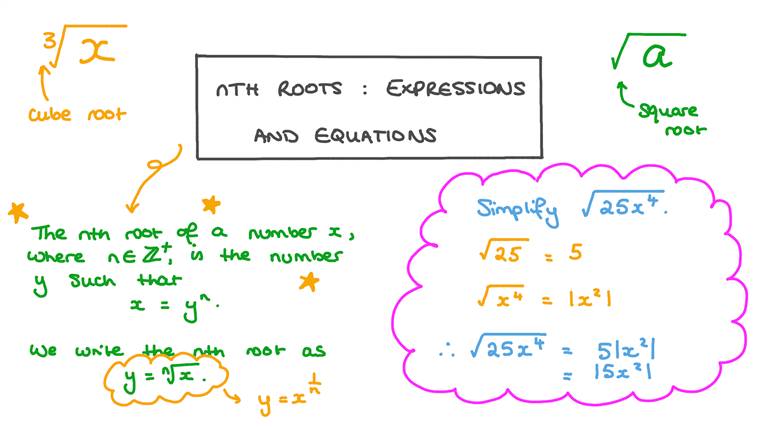 ∛x
cube root
nTH ROOTS : EXPRESSIONS
AND EQUATIONS
√a
square
root
The nth root of a number x,
where n∈ℤ⁺, is the number
y such that
x = yⁿ.
We write the nth root as
y = ⁿ√x.
y = x^(1/n)
Simplify √(25x⁴).
√25 = 5
√(x⁴) = |x²|
∴ √(25x⁴) = 5|x²|
= |5x²|